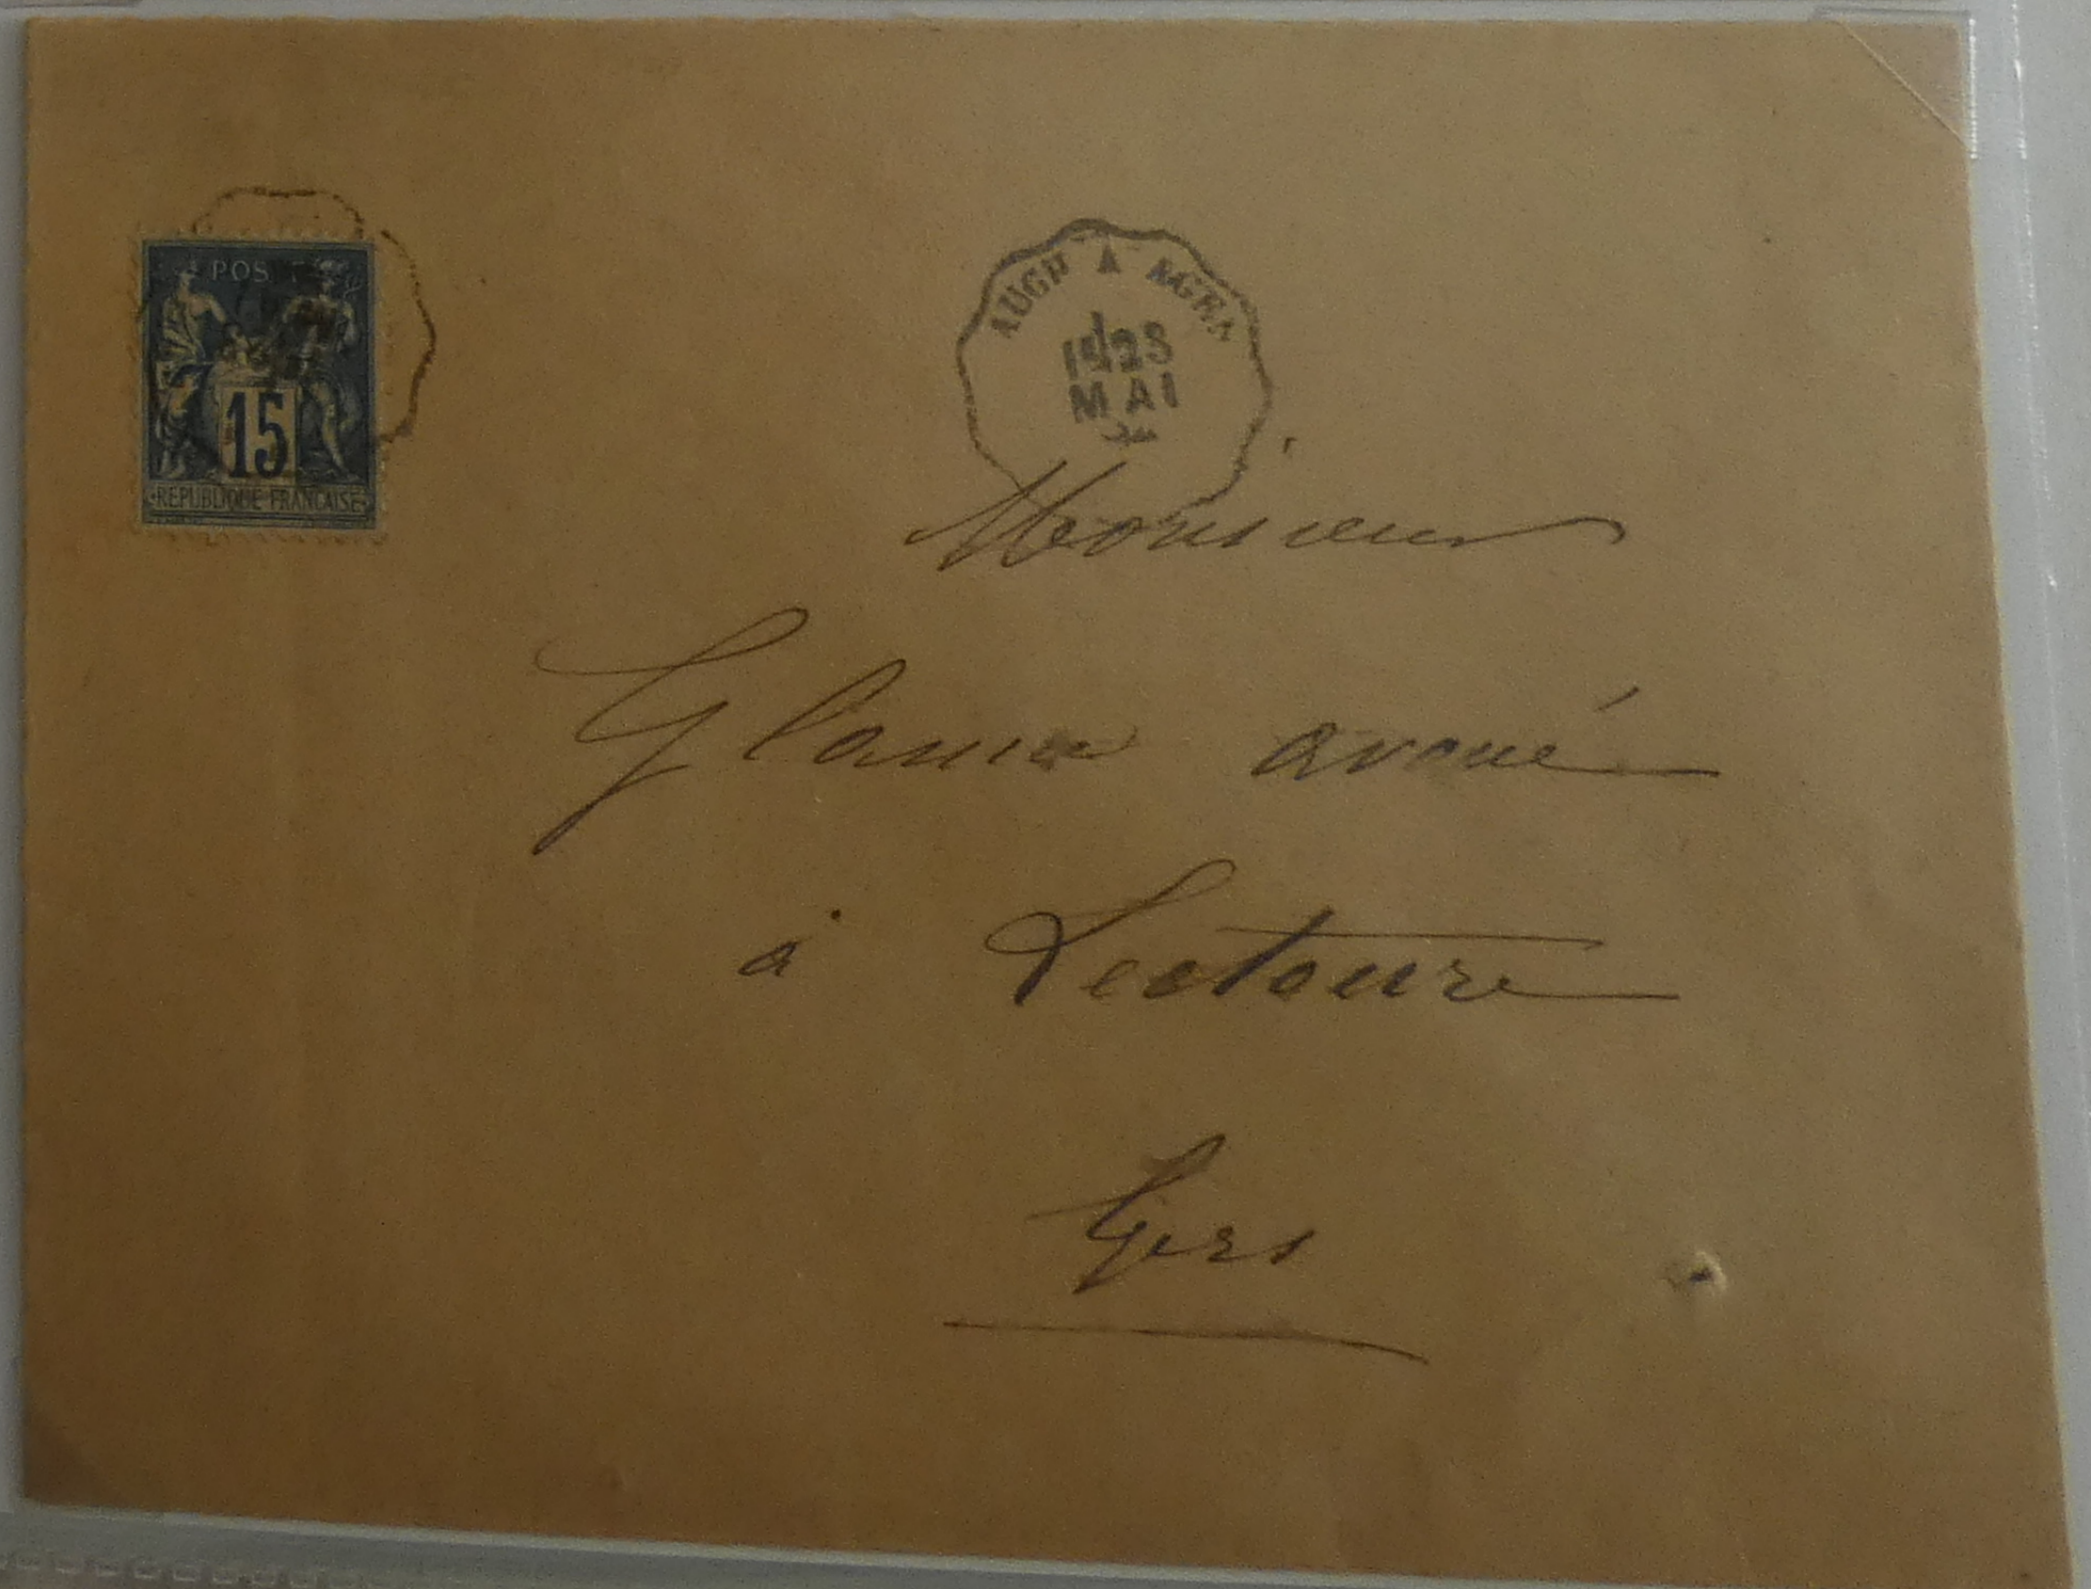 POSTES
15
REPUBLIQUE FRANCAISE
AUCH A AGEN
MAI
Monsieur
avoué
à Lectoure
Gers